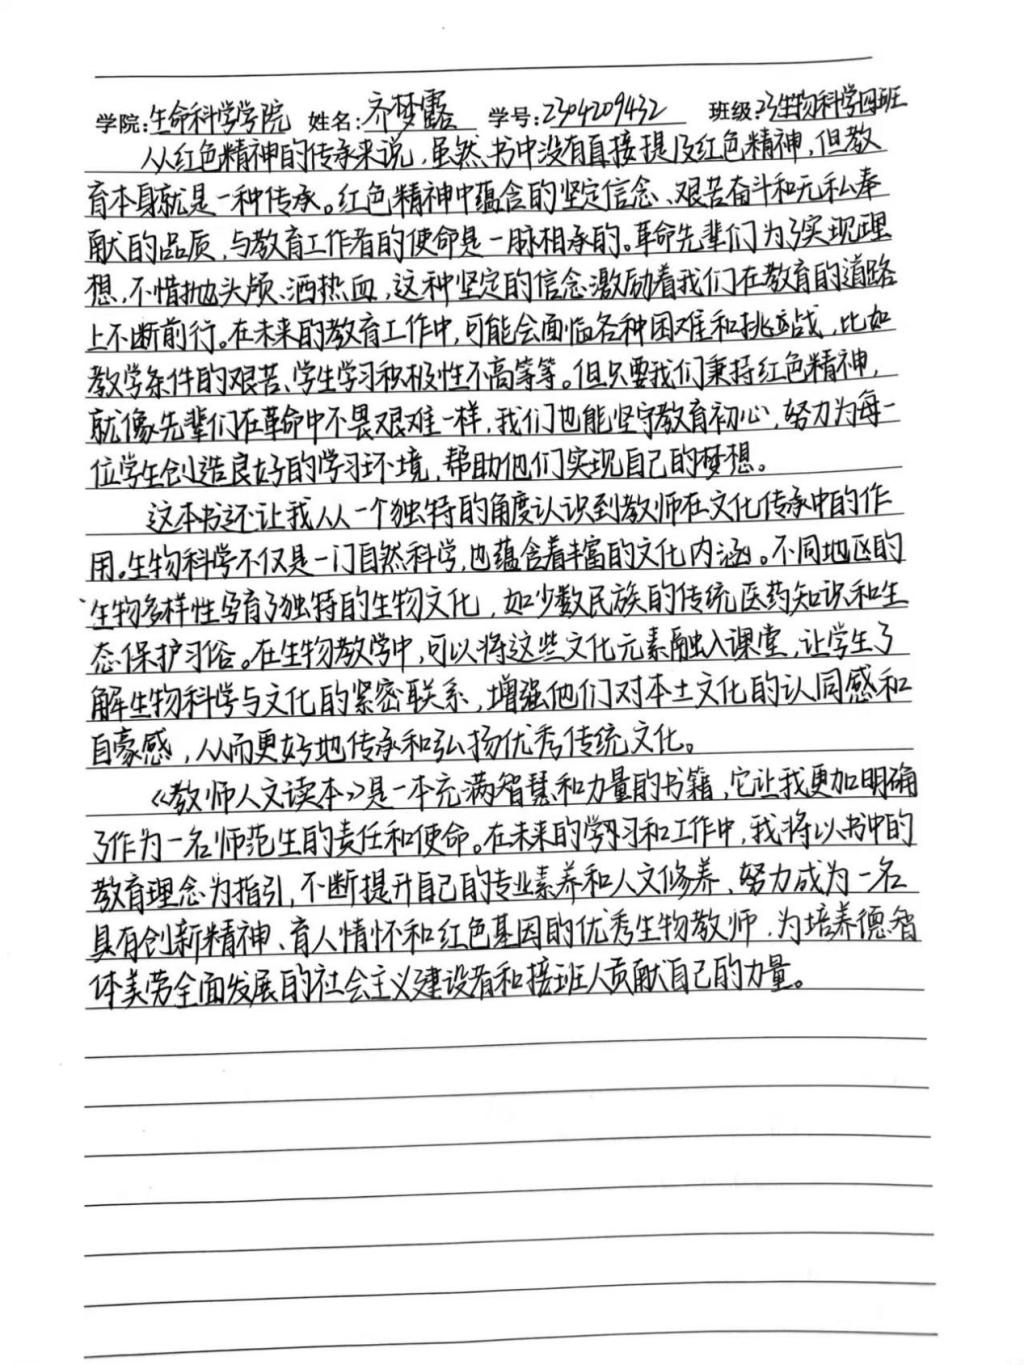 学院:生命科学学院 姓名:齐梦露 学号:2304209432 班级:23生物科学四班
从红色精神的传承来说,虽然书中没有直接提及红色精神,但教
育本身就是一种传承。红色精神中蕴含的坚定信念、艰苦奋斗和无私奉
献的品质,与教育工作者的使命是一脉相承的。革命先辈们为了实现理
想,不惜抛头颅、洒热血,这种坚定的信念激励着我们在教育的道路
上不断前行。在未来的教育工作中,可能会面临各种困难和挑战,比如
教学条件的艰苦、学生学习积极性不高等等。但只要我们秉持红色精神,
就像先辈们在革命中不畏艰难一样,我们也能坚守教育初心,努力为每一
位学生创造良好的学习环境,帮助他们实现自己的梦想。
这本书还让我从一个独特的角度认识到教师在文化传承中的作
用。生物科学不仅是一门自然科学,也蕴含着丰富的文化内涵。不同地区的
生物多样性孕育了独特的生物文化,如少数民族的传统医药知识和生
态保护习俗。在生物教学中,可以将这些文化元素融入课堂,让学生了
解生物科学与文化的紧密联系,增强他们对本土文化的认同感和
自豪感,从而更好地传承和弘扬优秀传统文化。
《教师人文读本》是一本充满智慧和力量的书籍,它让我更加明确
了作为一名师范生的责任和使命。在未来的学习和工作中,我将以书中的
教育理念为指引,不断提升自己的专业素养和人文修养、努力成为一名
具有创新精神、育人情怀和红色基因的优秀生物教师,为培养德智
体美劳全面发展的社会主义建设者和接班人贡献自己的力量。